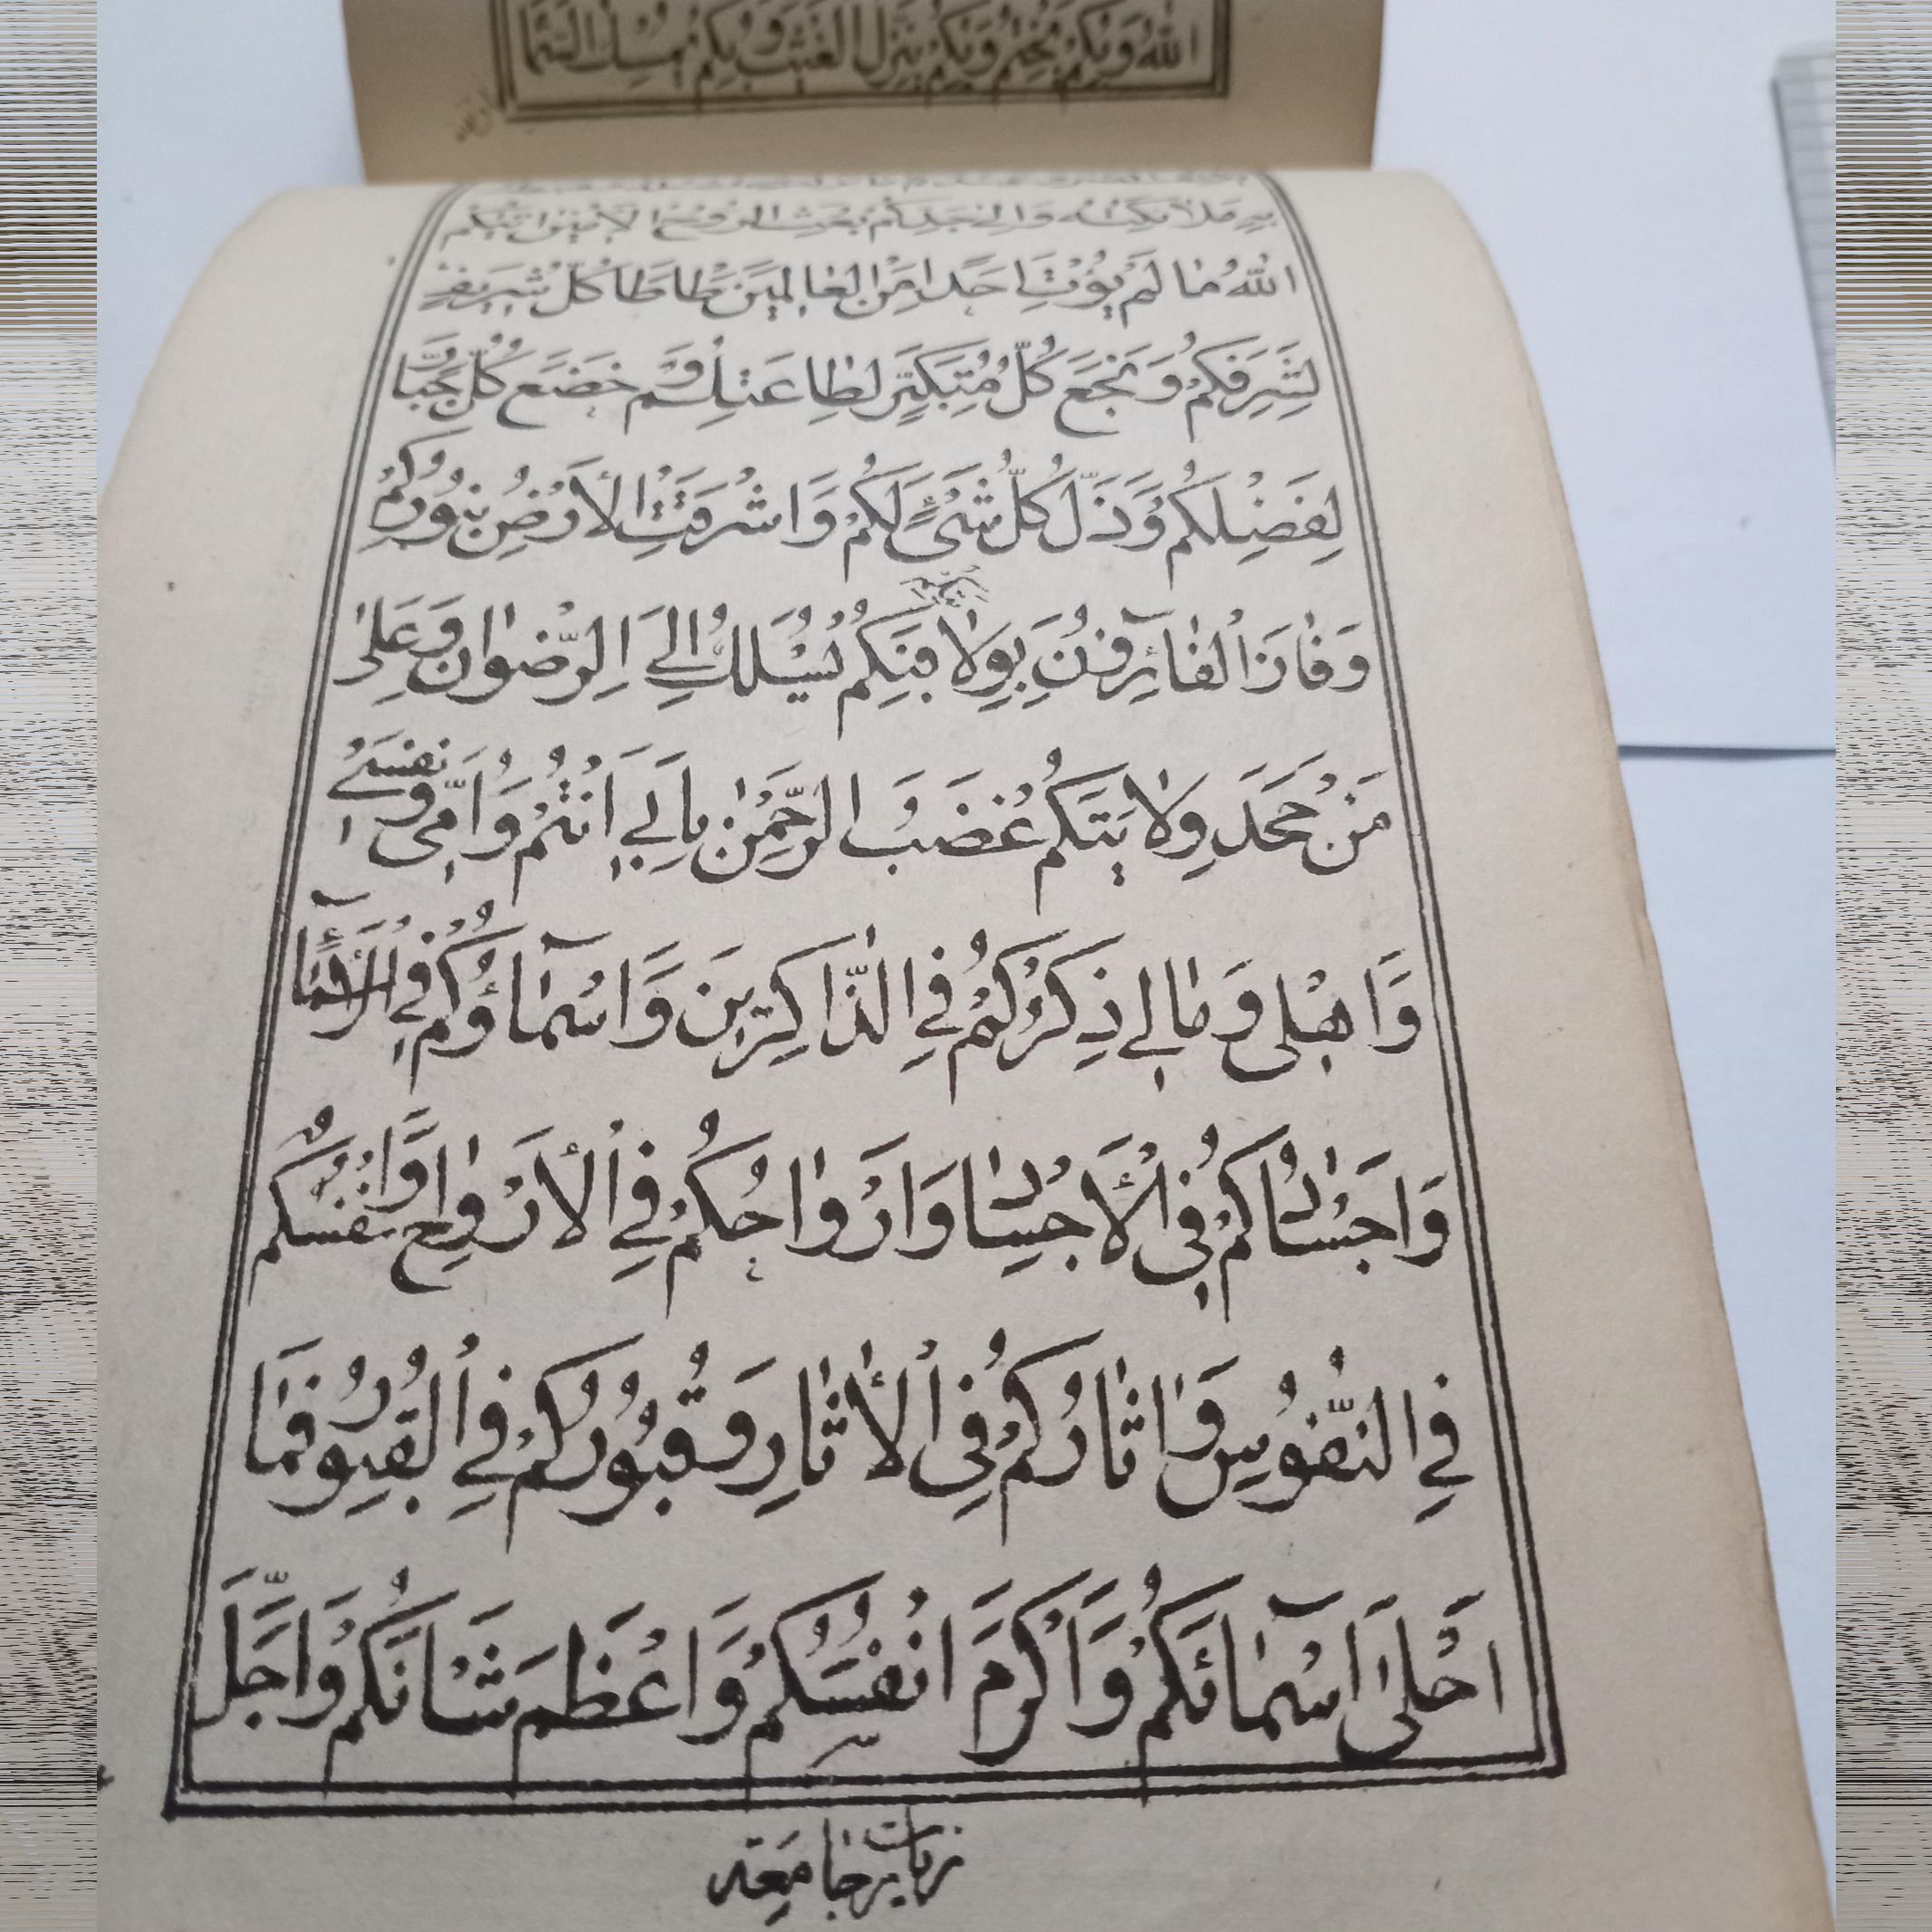 الله وبكم يختم وبكم ينزل الغيث وبكم يمسك السما
ملائكته والى جدكم بعث الروح الامين اتيكم
الله ما لم يؤت احدا من العالمين طاطا كل شريف
لشرفكم وبخع كل متكبر لطاعتكم وخضع كل جبار
لفضلكم وذل كل شئ لكم واشرقت الارض بنوركم
وفاز الفائزون بولايتكم بكم يسلك الى الرضوان وعلى
من جحد ولايتكم غضب الرحمن بابي انتم وامي ونفسي
واهلي ومالي ذكركم في الذاكرين واسماؤكم في الاسماء
واجسادكم في الاجساد وارواحكم في الارواح وانفسكم
في النفوس واثاركم في الاثار وقبوركم في القبور فما
احلى اسمائكم واكرم انفسكم واعظم شانكم واجل
زیارت جامعه